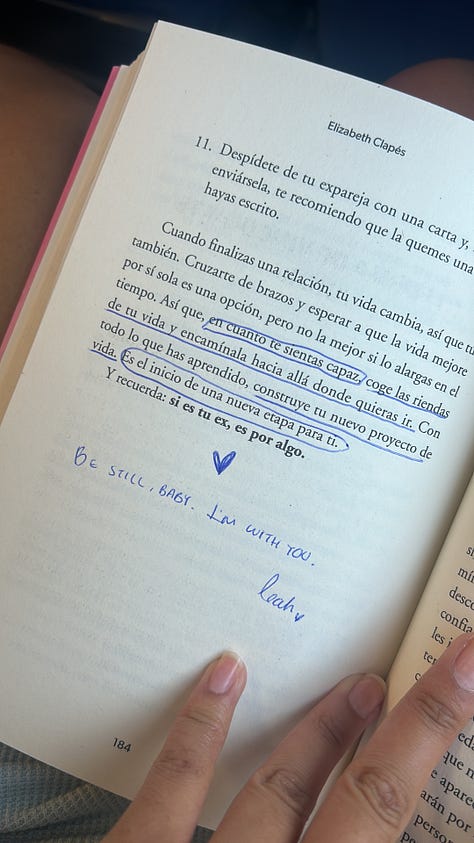 Elizabeth Clapés
11. Despídete de tu expareja con una carta y,
enviársela, te recomiendo que la quemes una
hayas escrito.
Cuando finalizas una relación, tu vida cambia, así que tu
también. Cruzarte de brazos y esperar a que la vida mejore
por sí sola es una opción, pero no la mejor si lo alargas en el
tiempo. Así que, en cuanto te sientas capaz, coge las riendas
de tu vida y encamínala hacia allá donde quieras ir. Con
todo lo que has aprendido, construye tu nuevo proyecto de
vida. Es el inicio de una nueva etapa para ti.
Y recuerda: si es tu ex, es por algo.
BE STILL, BABY. I'm WITH YOU.
leah
184